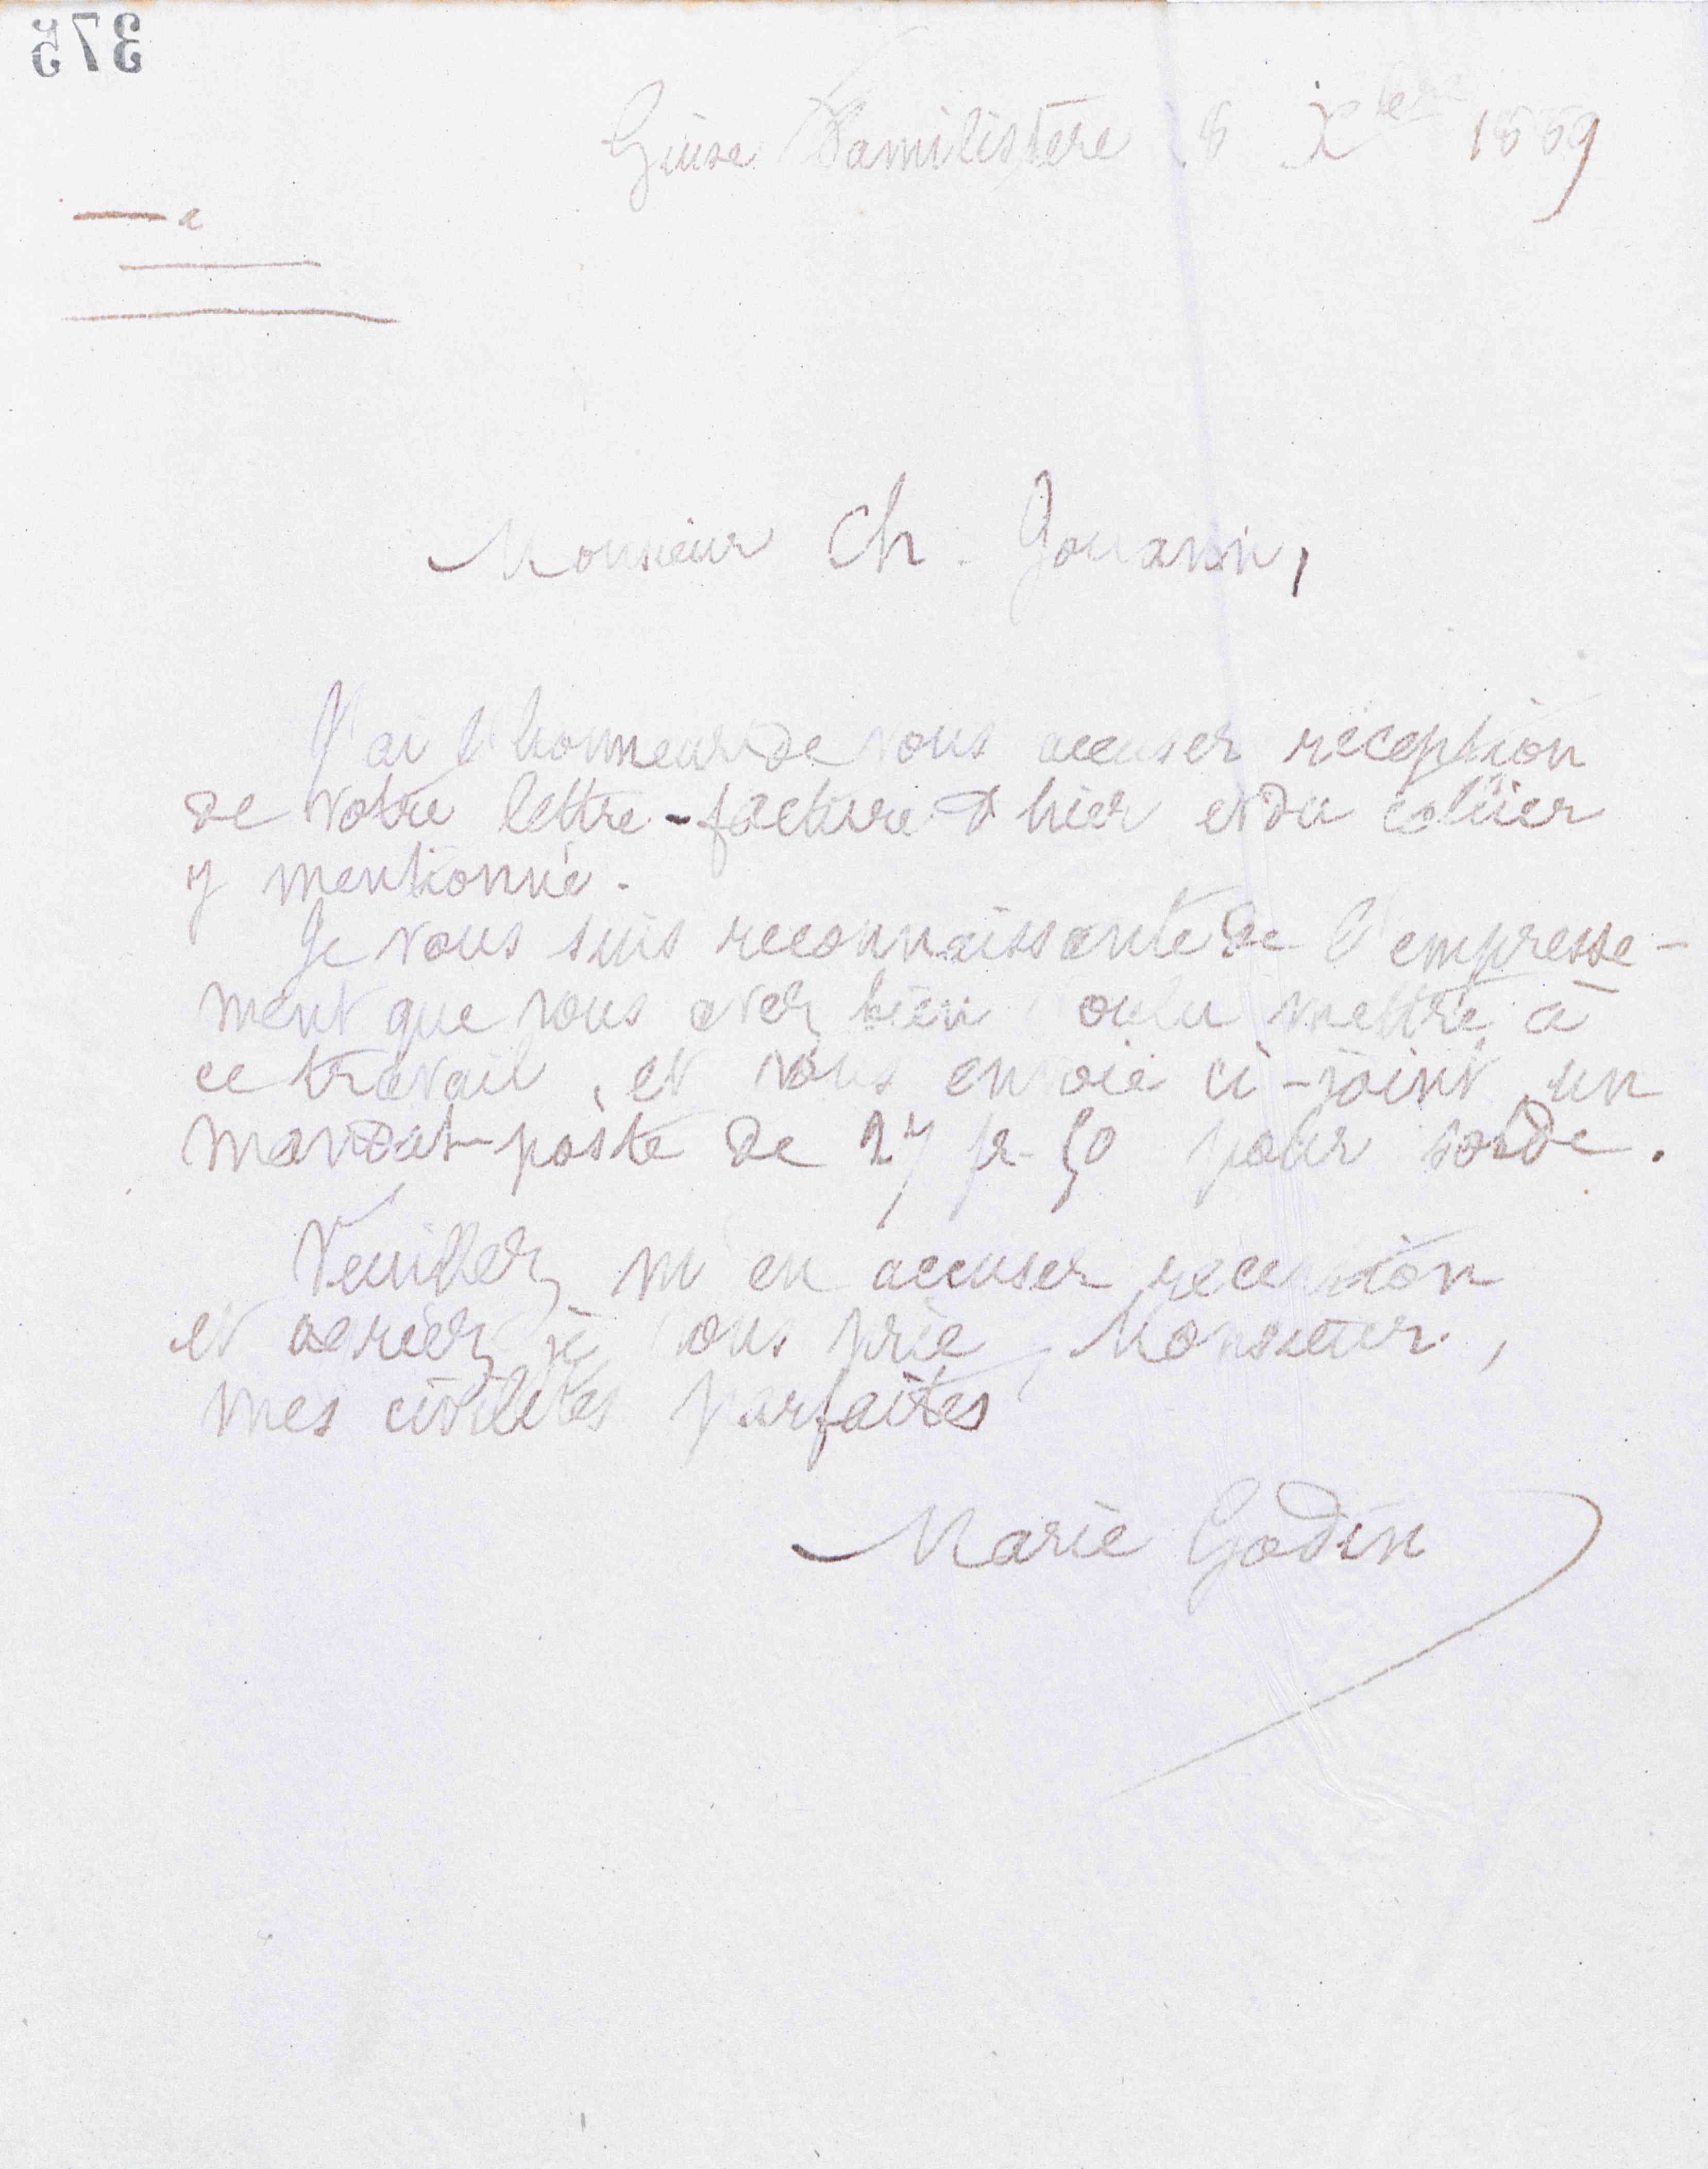 375
Guise Familistère 8 Xbre 1889
Monsieur Ch. Gouann,
J'ai l'honneur de vous accuser réception
de votre lettre-facture d'hier et du colier
y mentionné.
Je vous suis reconnaissante de l'empresse-
ment que vous avez bien voulu mettre à
ce travail, et vous envoie ci-joint un
mandat-poste de 27 fr. 50 pour solde.
Veuillez m'en accuser réception
et agréer, je vous prie, Monsieur,
mes civilités parfaites
Marie Godin